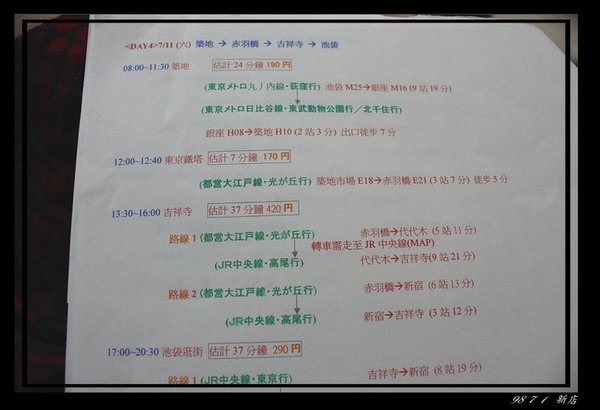 <DAY4>7/11 (六) 築地 → 赤羽橋 → 吉祥寺 → 池袋
08:00~11:30 築地 估計 24 分鐘 190 円
(東京メトロ丸ノ内線・荻窪行) 池袋 M25→銀座 M16 (9 站 19 分)
(東京メトロ日比谷線・東武動物公園行／北千住行)
銀座 H08→築地 H10 (2 站 3 分) 出口徒步 7 分
12:00~12:40 東京鐵塔 估計 7 分鐘 170 円
(都営大江戸線・光が丘行) 築地市場 E18→赤羽橋 E21 (3 站 7 分) 徒步 5 分
13:30~16:00 吉祥寺 估計 37 分鐘 420 円
路線 1 (都営大江戸線・光が丘行) 赤羽橋→代代木 (5 站 11 分)
轉車需走至 JR 中央線(MAP)
(JR中央線・高尾行) 代代木→吉祥寺(9 站 21 分)
路線 2 (都営大江戸線・光が丘行) 赤羽橋→新宿 (6 站 13 分)
(JR中央線・高尾行) 新宿→吉祥寺 (3 站 12 分)
17:00~20:30 池袋逛街 估計 37 分鐘 290 円
路線 1 (JR中央線・東京行) 吉祥寺→新宿 (8 站 19 分)
9871 新店